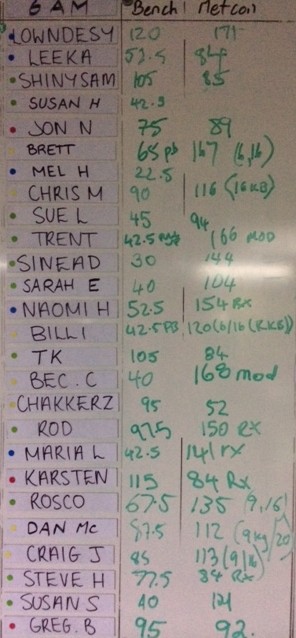 6 AM Bench Metcon
LOWNDESY 120 171
LEEKA 52.5
SHINYSAM 105 85
SUSAN H 42.5
JON N 75 89
BRETT 65 PB 167 (6,16)
MEL H 22.5
CHRIS M 90 116 (16KB)
SUE L 45 94
TRENT 42.5 166 MOD
SINEAD 30 144
SARAH E 40 104
NAOMI H 52.5 154 RX
BILLI 42.5 PB 120 (6/16 (RKB))
TK 105 84
BEC. C 40 168 mod
CHAKKERZ 95 52
ROD 97.5 150 RX
MARIA L 42.5 141 rx
KARSTEN 115 84 Rx
ROSCO 67.5 135 (9,16)
DAN Mc 87.5 112 (9kg/20)
CRAIG J 85 113 (9/16)
STEVE H 77.5 84 Rx
SUSAN S 40 121
GREG. B 95 92